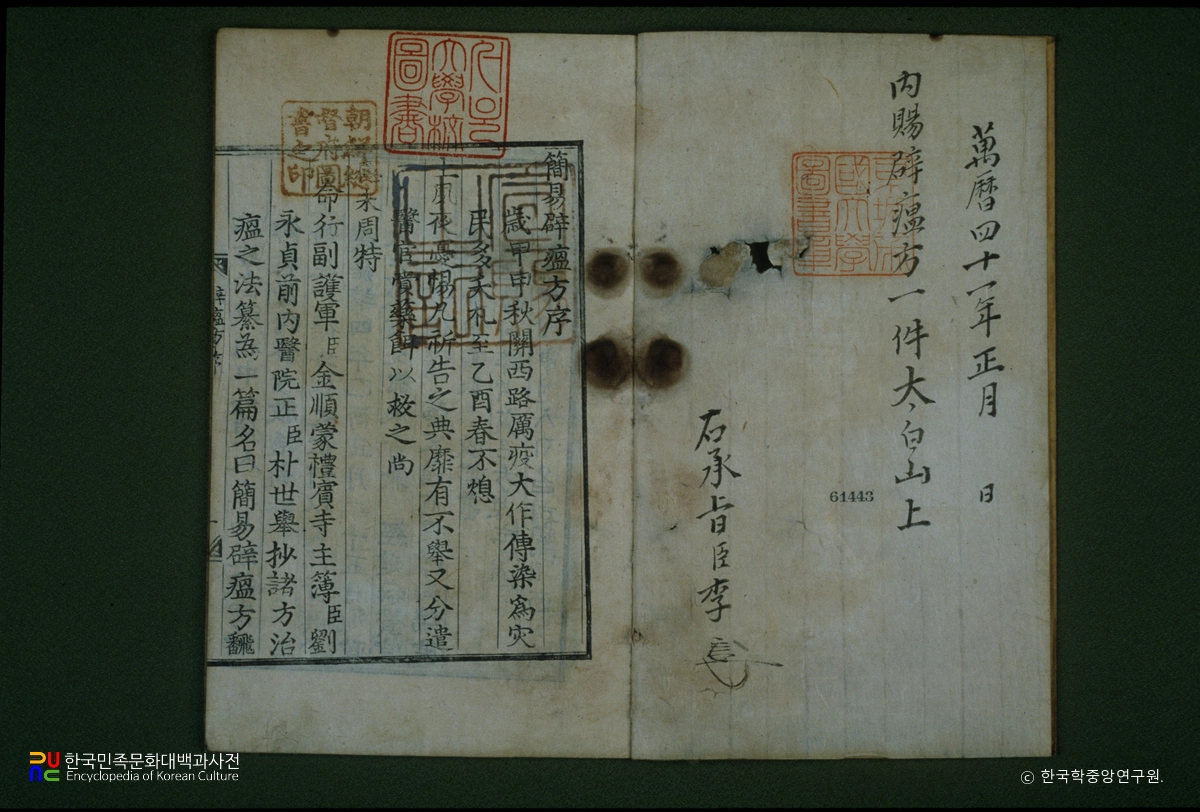 萬曆四十一年正月 日
內賜辟瘟方一件太白山上
右承旨臣李
61443
簡易辟瘟方序
歲甲申秋關西路厲疫大作傳染爲灾
民多夭札至乙酉春不熄
上夙夜憂惕凡祈告之典靡有不舉又分遣
醫官賫藥餌以救之尚
未周特
命行副護軍臣金順蒙禮賓寺主簿臣劉
永貞前內醫院正臣朴世舉抄諸方治
瘟之法纂為一篇名曰簡易辟瘟方飜
朝鮮總督府圖書之印
大學校圖書
한국민족문화대백과사전
Encyclopedia of Korean Culture
© 한국학중앙연구원.